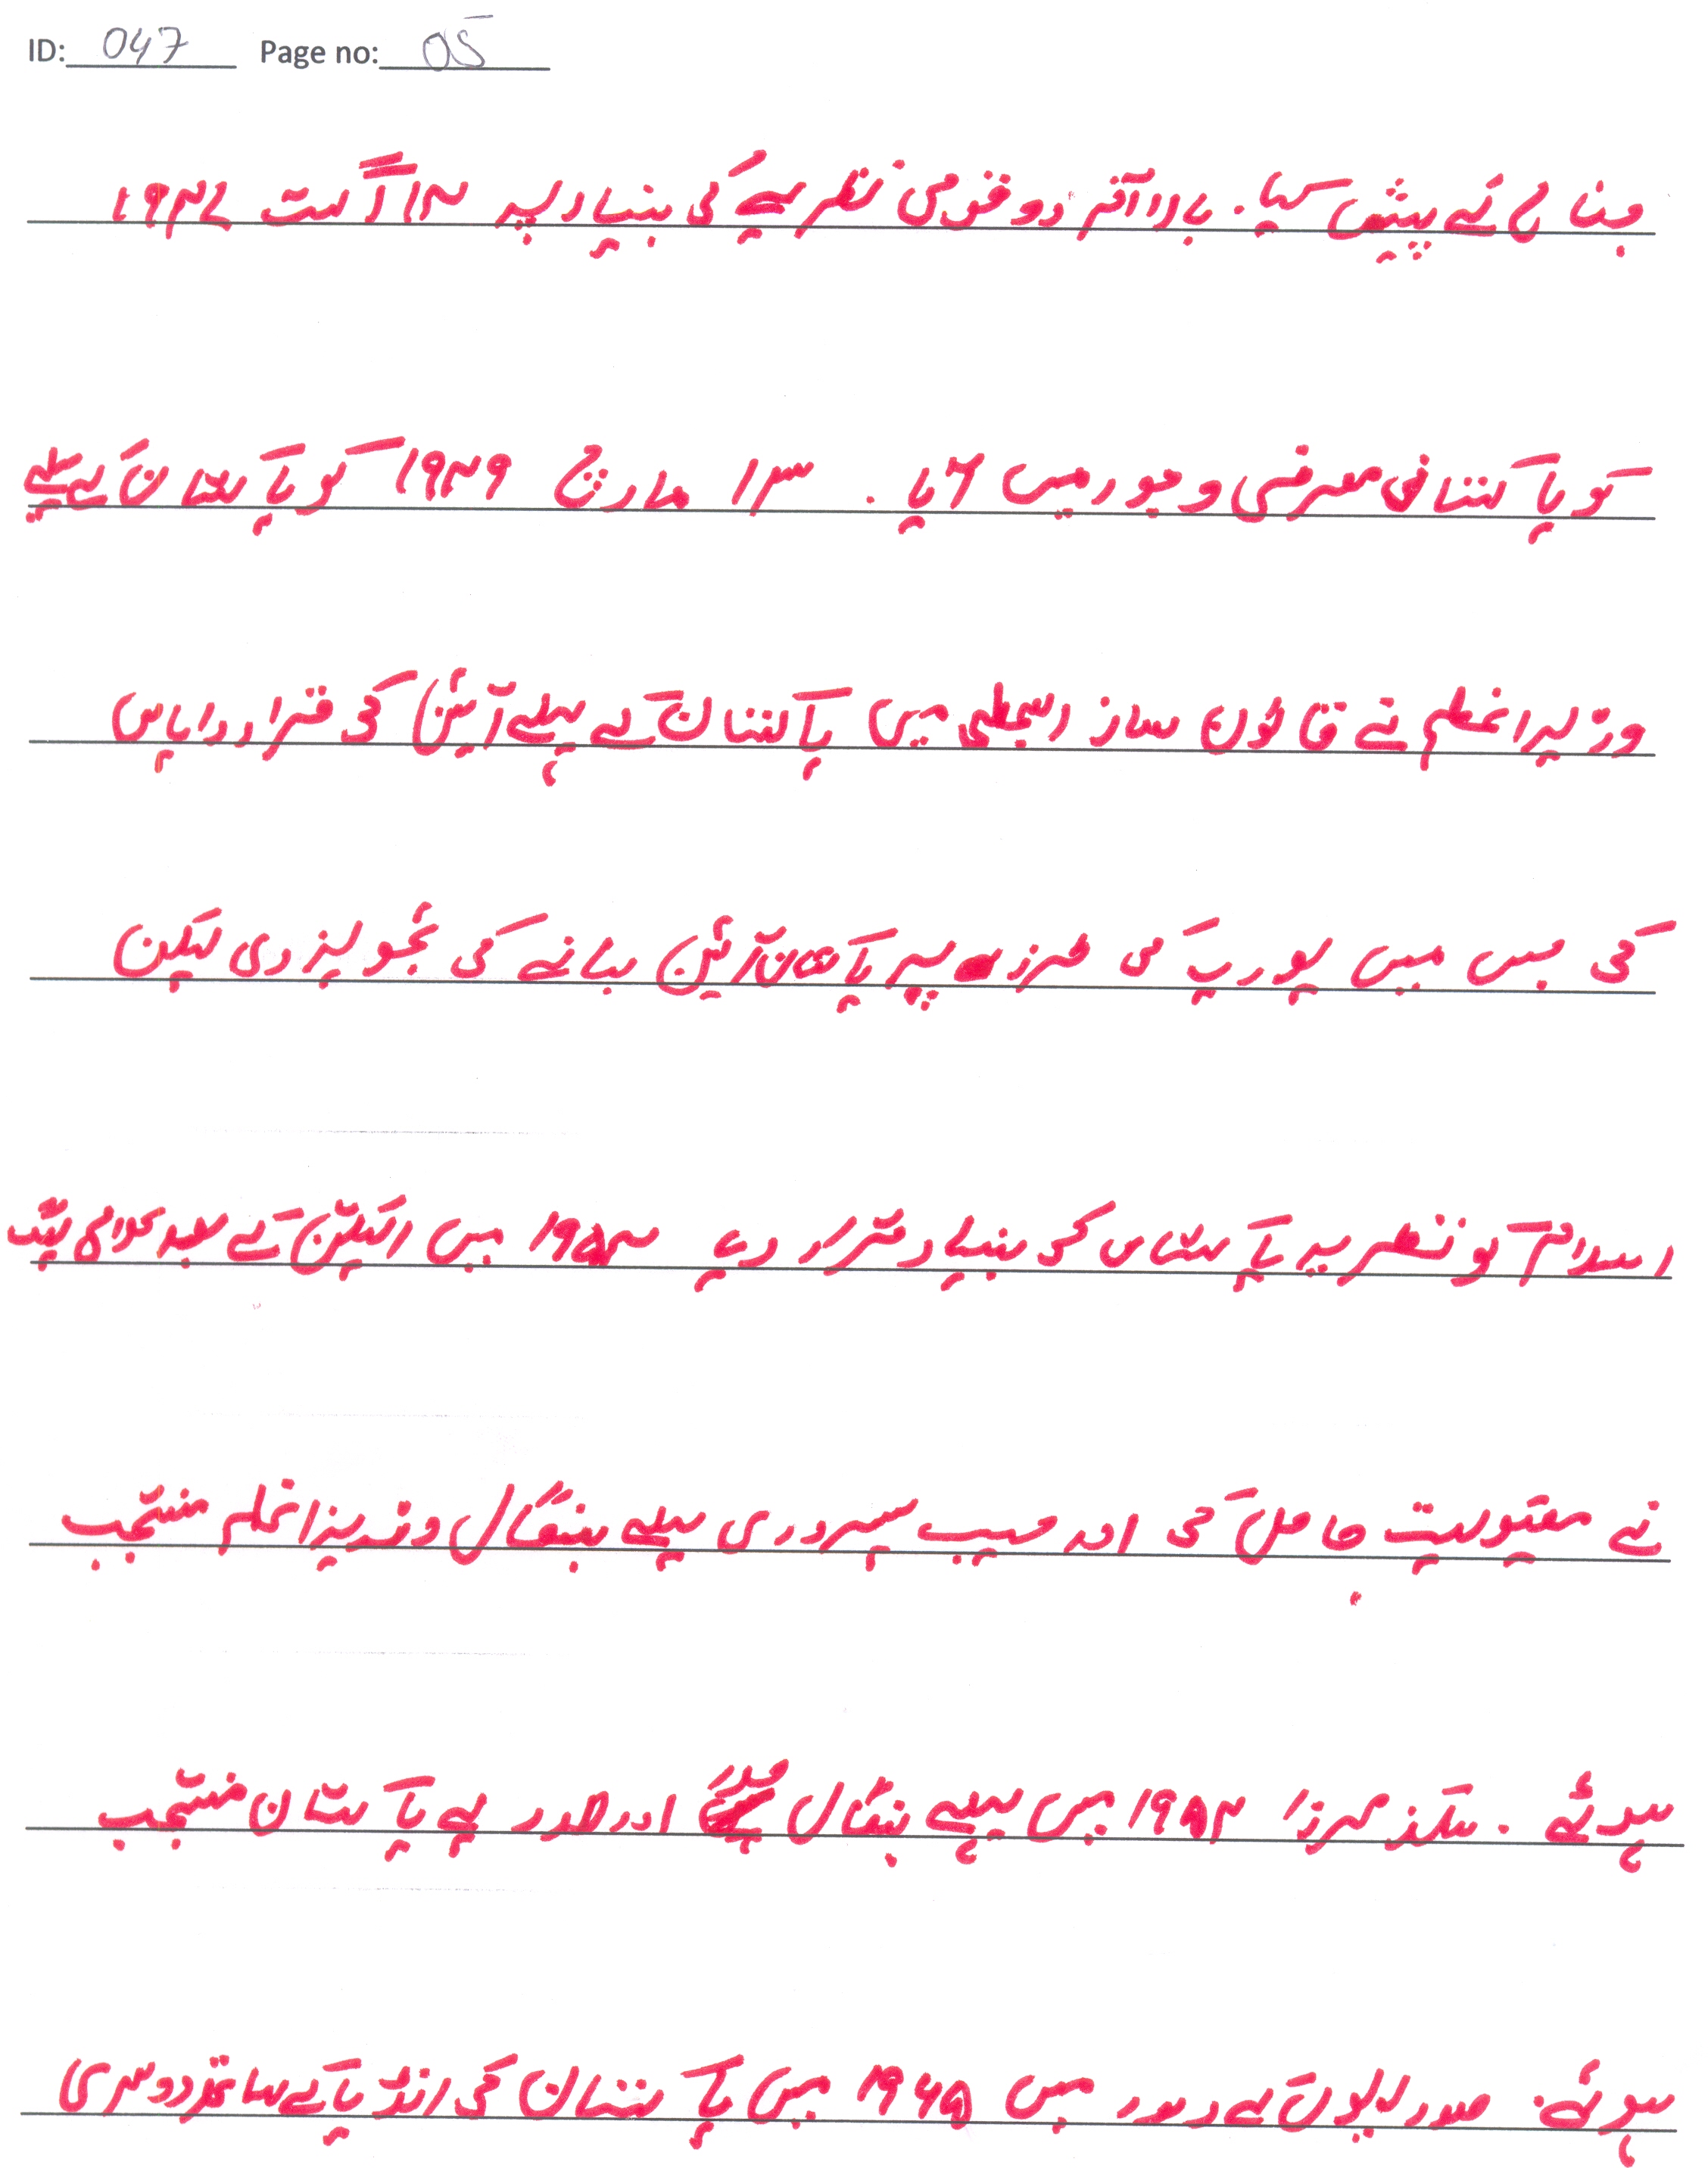 ID: 047 Page no: 05
جناح نے پیش کیا. بالاآخر دو قومی نظریے کی بنیاد پر ۱۴ اگست ۱۹۴۷
کو پاکستان معرضی وجود میں آیا. ۱۳ مارچ ۱۹۴۹ کو پاکستان کے پہلے
وزیراعظم نے قانون ساز اسمبلی میں پاکستان کے پہلے آئین کی قرارداد پاس
کی جس میں یورپ کی طرز پر پاکستان آئین بنانے کی تجویز دی لیکن
اسلام کو نظریہ پاکستان کی بنیاد قرار دیا ۱۹۵۴ میں الیکشن کے بعد عوامی لیگ
نے مقبولیت حاصل کی اور سہروردی پہلے بنگال وزیراعظم منتخب
ہوئے. سکندر مرزا ۱۹۵۴ میں پہلے بنگال اور صدر پاکستان منتخب
ہوئے. صدر ایوب کے دور میں ۱۹۶۵ میں پاکستان کی انڈیا کے ساتھ دوسری